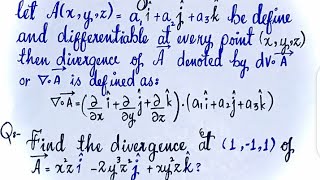 let A⃗(x,y,z)=a₁î+a₂ĵ+a₃k̂ be define
and differentiable at every point (x,y,z)
then divergence of A⃗ denoted by div A⃗
or ∇∘A⃗ is defined as:
∇∘A⃗=(∂/∂x î+∂/∂y ĵ+∂/∂z k̂)·(a₁î+a₂ĵ+a₃k̂)
Qs- Find the divergence at (1,-1,1) of
A⃗=x²zî-2y³z²ĵ+xy²zk̂?